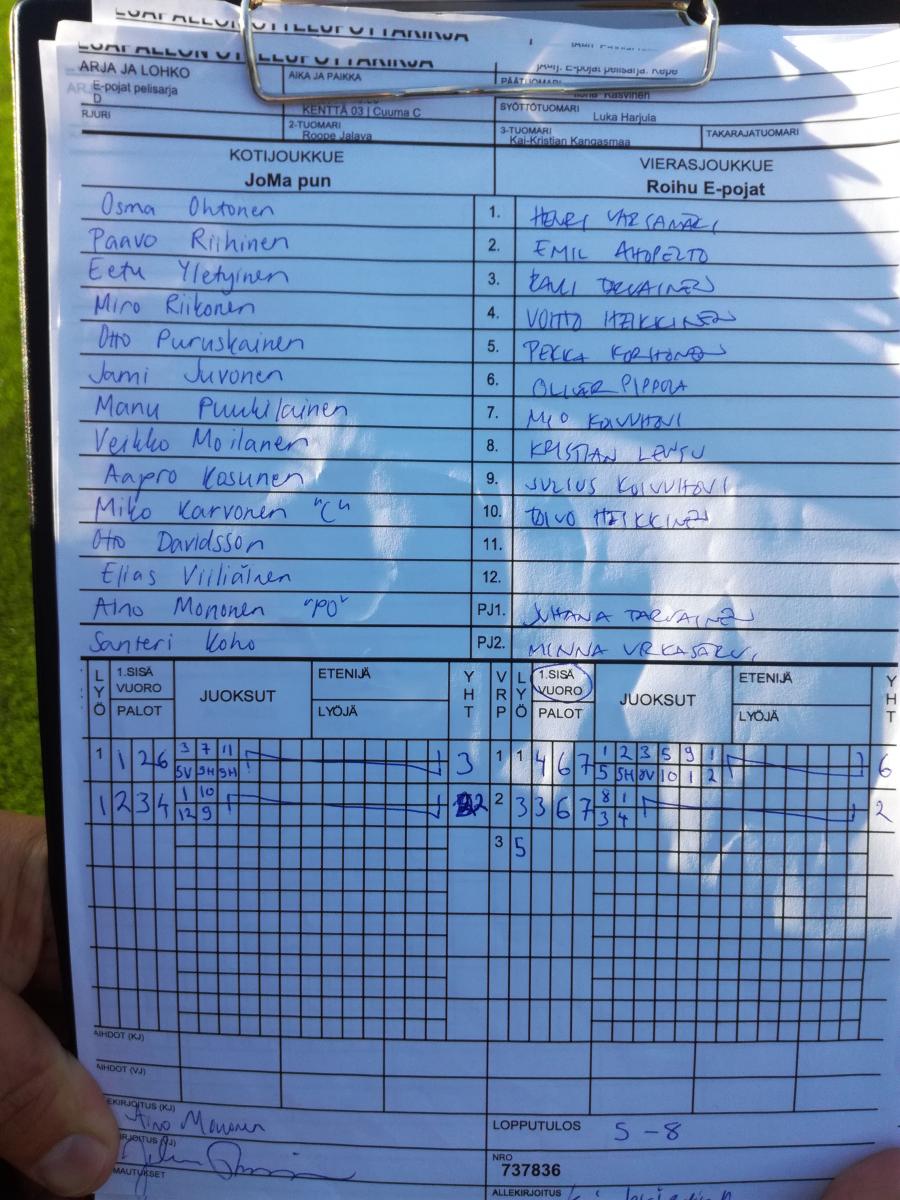 ESAPALLON OTTELUPÖYTÄKIRJA
ARJA JA LOHKO
E-pojat pelisarja
D
AIKA JA PAIKKA
KENTTÄ 03 | Cuuma C
SYÖTTÖTUOMARI
Luka Harjula
RJURI
2-TUOMARI
Roope Jalava
3-TUOMARI
Kai-Kristian Kangasmaa
TAKARAJATUOMARI
KOTIJOUKKUE VIERASJOUKKUE
JoMa pun Roihu E-pojat
Osma Ohtonen 1. HENRI
Paavo Riihinen 2. EMIL AHOPELTO
Eetu Yletyinen 3. RAULI TARVAINEN
Miro Riikonen 4. VOITTO HEIKKINEN
Otto Puruskainen 5. PEKKA KORHONEN
Jami Juvonen 6. OLIVER PIPPOLA
Manu Puukilainen 7. KOIVUHOVI
Veikko Moilanen 8. KRISTIAN LENSU
Aapro Kosunen 9. JULIUS KOIVUHOVI
Miko Karvonen "C" 10. TOIVO HEIKKINEN
Otto Davidsson 11.
Elias Viiliäinen 12.
Aino Mononen "PO" PJ1. JUHANA TARVAINEN
Santeri Koho PJ2. MINNA
LYÖ 1.SISÄ VUORO PALOT JUOKSUT ETENIJÄ LYÖJÄ YHT VRP LYÖ 1.SISÄ VUORO PALOT JUOKSUT ETENIJÄ LYÖJÄ YHT
1 1 2 6 3 7 11 3 1 1 4 6 7 1 2 3 5 9 1 6
5V 9H 9H 5 5H 10 1 2
1 2 3 4 1 10 2 2 3 3 6 7 8 1 2
12 9 3 4
3 5
AIHDOT (KJ)
AIHDOT (VJ)
EKIRJOITUS (KJ)
Aino Mononen
LOPPUTULOS 5-8
IRJOITUS (VJ)
NRO
737836
MAUTUKSET
ALLEKIRJOITUS